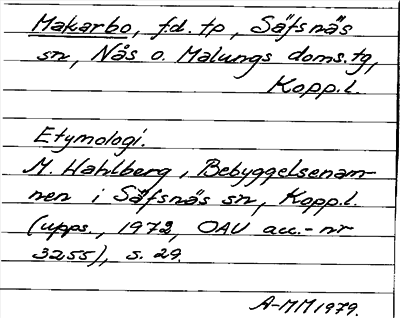 Makarbo, f.d. tp, Säfsnäs
sn, Nås o. Malungs doms.tg,
Kopp.l.
Etymologi.
M. Wahlberg, Bebyggelsenam-
nen i Säfsnäs sn, Kopp.l.
(upps., 1972, OAU acc.-nr
3255), s. 29.
A-MM 1979.